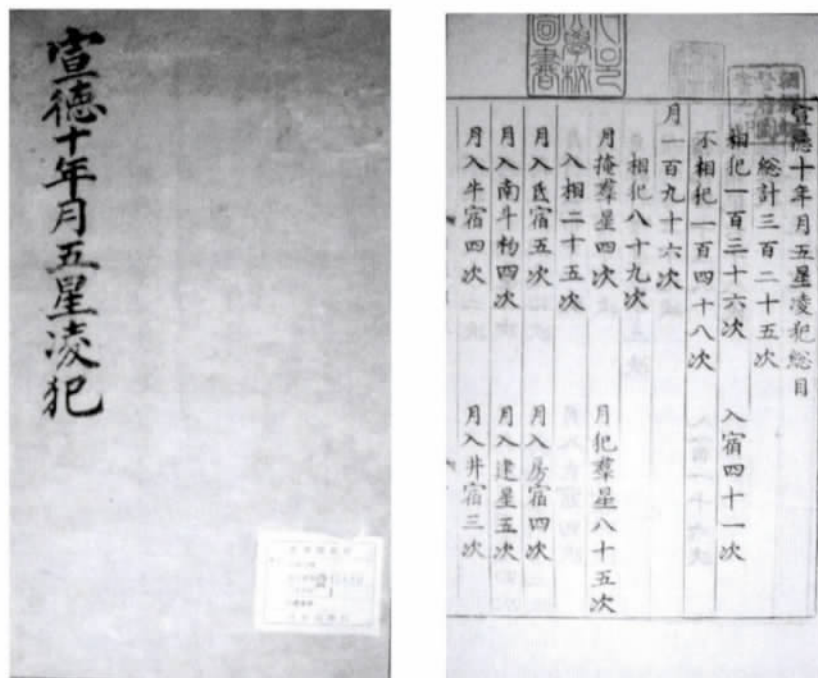 宣德十年月五星凌犯
宣德十年月五星凌犯総目
総計三百二十五次
相犯一百三十六次 入宿四十一次
不相犯一百四十八次
月一百九十六次
相犯八十九次
月掩羣星四次 月犯羣星八十五次
入相二十五次
月入氐宿五次 月入房宿四次
月入南斗杓四次 月入建星五次
月入牛宿四次 月入井宿三次